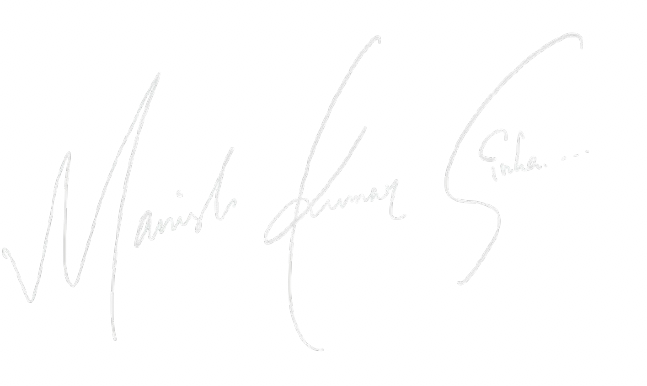 Manish Kumar Sinha....